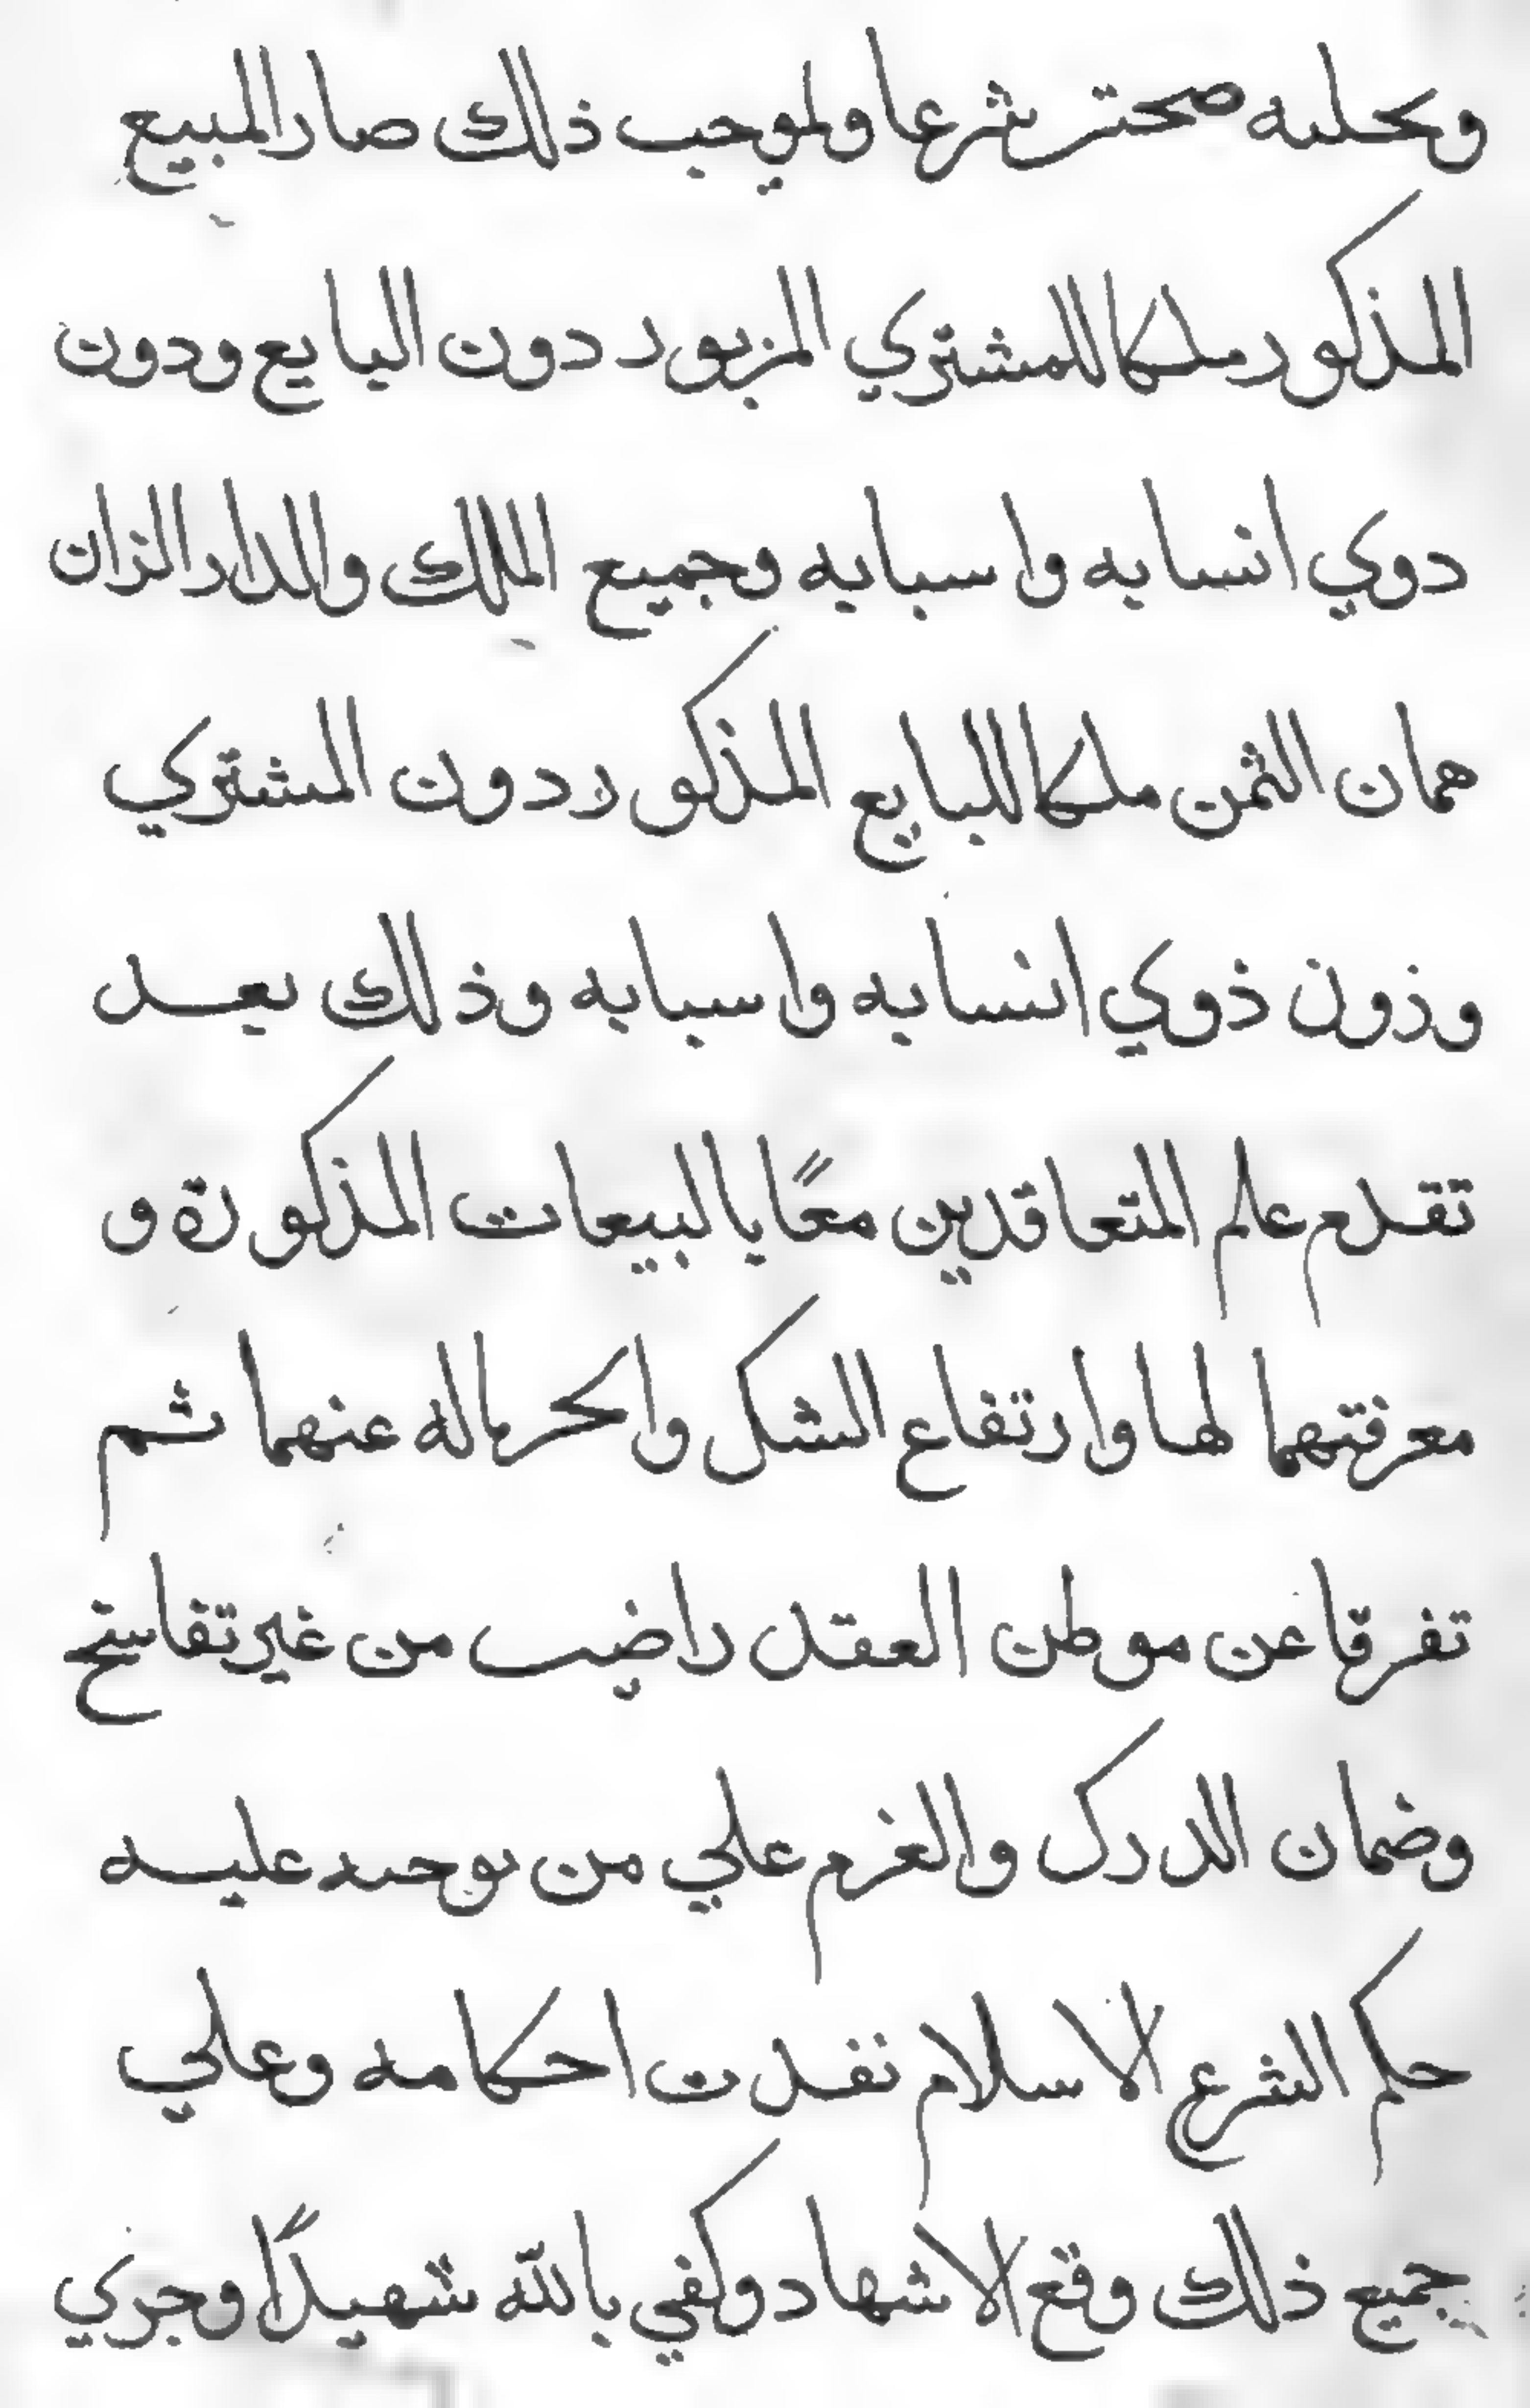 وتحليه صحتر شرعا ولموجب ذلك صار المبيع
المذكور ملكا للمشتري المزبور دون البايع ودون
دوي انسابه واسبابه وجميع الملك والدار الزان
همان الثمن ملكا للبايع المذكور دون المشتري
وزون ذوي انسابه واسبابه وذلك بعد
تقدم علم المتعاقدين معًا بالبيعات المذكورة و
معرفتهما لها وارتفاع الشك والحرماله عنهما ثم
تفرقا عن موطن العقد راضيب من غير تفاسخ
وضمان الدرك والغرم علي من توجبه عليه
حكم الشرع الاسلام نفدت احكامه وعلي
جميع ذلك وقع الاشهاد وكفي بالله شهيدًا وجري